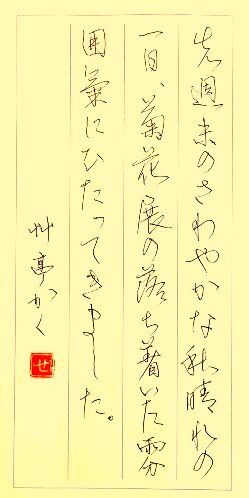 先週末のさわやかな秋晴れの
一日、菊花展の落ち着いた雰
囲氣にひたってきました。
艸亭かく
せ